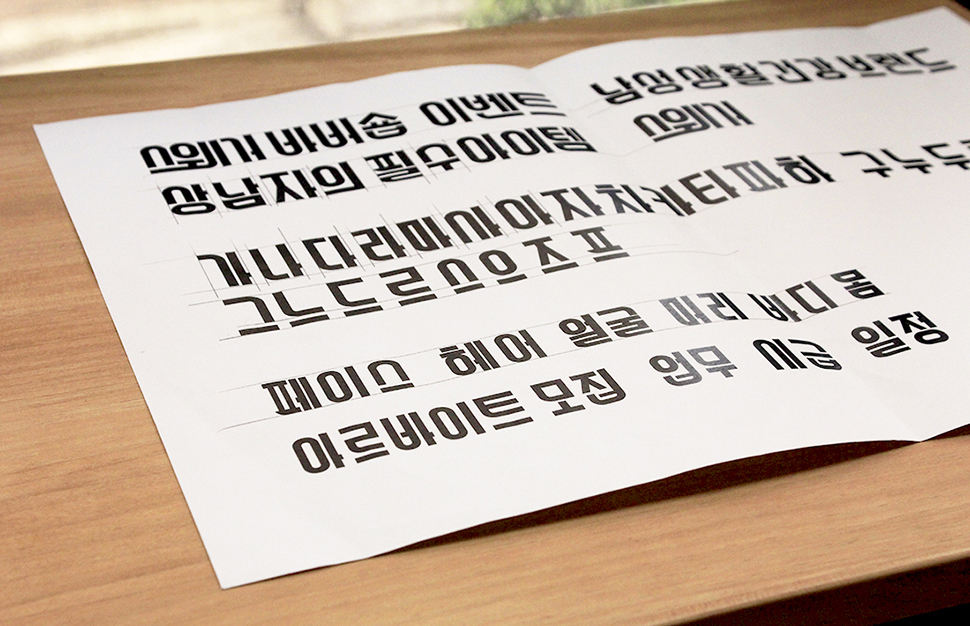 스웨거 바버숍 이벤트 남성생활건강브랜드
상남자의 필수아이템 스웨거
가나다라마사아자차카타파하 구누두
그느드르스으즈프
페이스 헤어 얼굴 머리 바디 몸
아르바이트 모집 업무 시급 일정